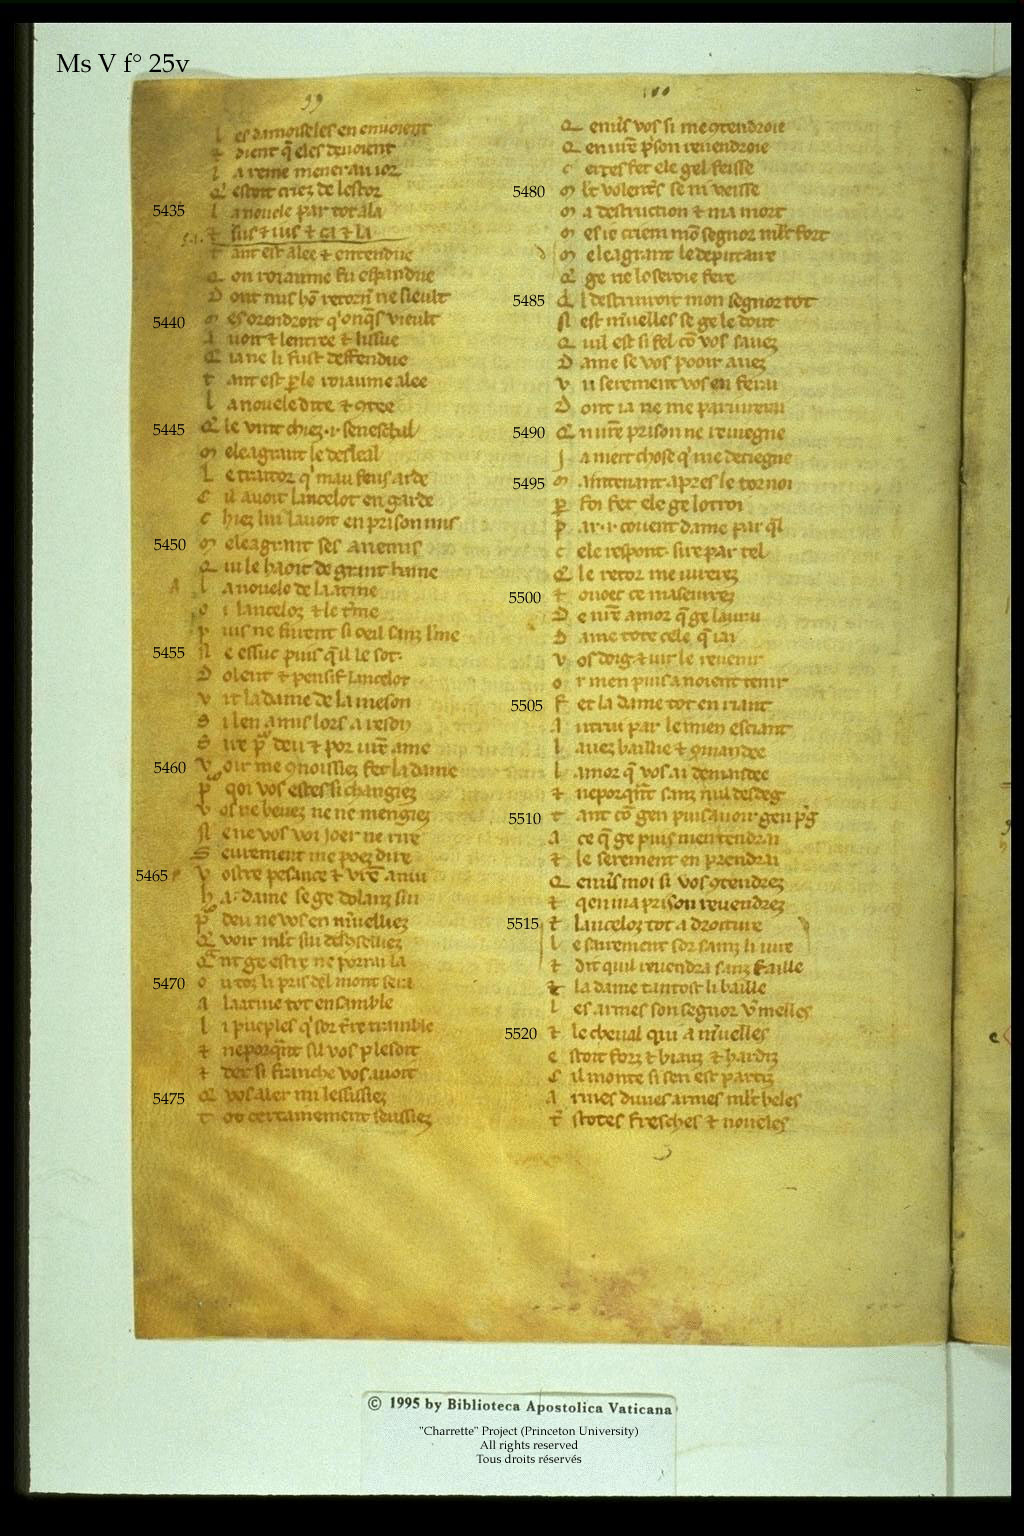 Ms V f° 25v
99
100
l es damoiseles en envoient
⁊ dient q̄ eles devoient
l a reine mener au ior
Q̓ estoit criez de lestor
5435 l a novele par tot ala
⁊ sus ⁊ ius ⁊ ca ⁊ la
t ant est alee ⁊ entendue
Q̓ ou roiaume fu espandue
D ont nus hō retorn̄ ne sieult
5440 m es orendroit q'onq̄s vieult
a voit lentree ⁊ lissue
Q̓ ia ne li fust deffendue
t ant est p̱ le roiaume alee
l a novele dite ⁊ ꝯtee
5445 Q̓ le vint chiez .i. seneschal
m eleagrant le desleal
L e traitor q' mau feus arde
C il avoit lancelot en garde
c hiez lui lavoit en prison mis
5450 m eleagrant ses anemis
Q ui le haoit de grant haine
l a novele de laatine
o i lanceloz ⁊ le t̓me
p uis ne furent si oeil sanz lermē
5455 N e essuc puis q̄ il le sot
D olent ⁊ pensif lancelot
v it la dame de la meson
S i len a mis lors a reson
S ire p̱ deu ⁊ por vr̄e ame
5460 v oir me ꝯnoissiez fet la dame
p̱ qoi vos estes si changiez
v os ne bevez ne ne mengiez
N e ne vos voi joer ne rire
S eurement me poez dire
5465 v ostre pesance ⁊ vr̄e anui
h a dame se ge dolanz sui
p̱ deu ne vos en m̓uelliez
Q̓ voir ml't sui desoseilliez
Q̄nt ge estre ne porrai la
5470 o u toz li pris del mont sera
a laatine tot ensamble
l i pueples q' sor t̓re tramble
⁊ neporq̄nt sil vos plesoit
⁊ dex si franche vos avoit
5475 Q̓ vos aler mi lessissiez
t ot certainement seussiez
Q envs̓ vos si me ꝯtendroie
Q en vr̄e p̓son revendroie
c ertes fet ele gel feisse
5480 m l't volent̓s se ni veisse
m a destruction ⁊ ma mort
m es ie criem mō segnor ml't fort
m eleagrant le deputaire
Q̓ ge ne loseroie fere
5485 Q̓l destruiroit mon segnor tot
N est m̓uelles se ge le dout
Q uil est si fel cō vos savez
D ame se vos poor avez
v n serement vos en ferai
D ont ia ne me pariurerai
5490 Q̓ n vr̄e prison ne reviegne
J a mert chose q' me detiegne
5495 m aintenant apres le tornoi
p̱ foi fet ele ge lotroi
p ar .i. covent dame par q̄l
c ele respont sire par tel
Q̓ le retor me iurerez
5500 ⁊ ovoec ce maseurrez
D e vr̄e amor q̄ ge laurai
D ame tote cele q̄ iai
v os doig ⁊ iur le revenir
o r men puis a noient tenir
5505 F et la dame tot en riant
a utrui par le mien esciant
l avez baillie ⁊ ꝯmandee
l amor q̄ vos ai demandee
⁊ neporq̄nt sanz nul desdeg
5510 t ant cō gen puis avoir gen p̓g
a ce q̄ ge puis men tendrai
⁊ le serement en prendrai
Q envs̓ moi si vos ꝯtendrez
⁊ qen ma prison revendrez
5515 ⁊ lanceloz tot a droiture
l e sairement sor sainz li iure
⁊ dit quil revendra sanz faille
⁊ la dame tantost li baille
l es armes son segnor v̓melles
5520 ⁊ le cheval qui a m̓uelles
e stoit forz ⁊ biaux ⁊ hardiz
C il monte si sen est partiz
a rmes dunes armes ml't beles
t̄ stotes fresches ⁊ noveles
© 1995 by Biblioteca Apostolica Vaticana
"Charrette" Project (Princeton University)
All rights reserved
Tous droits réservés